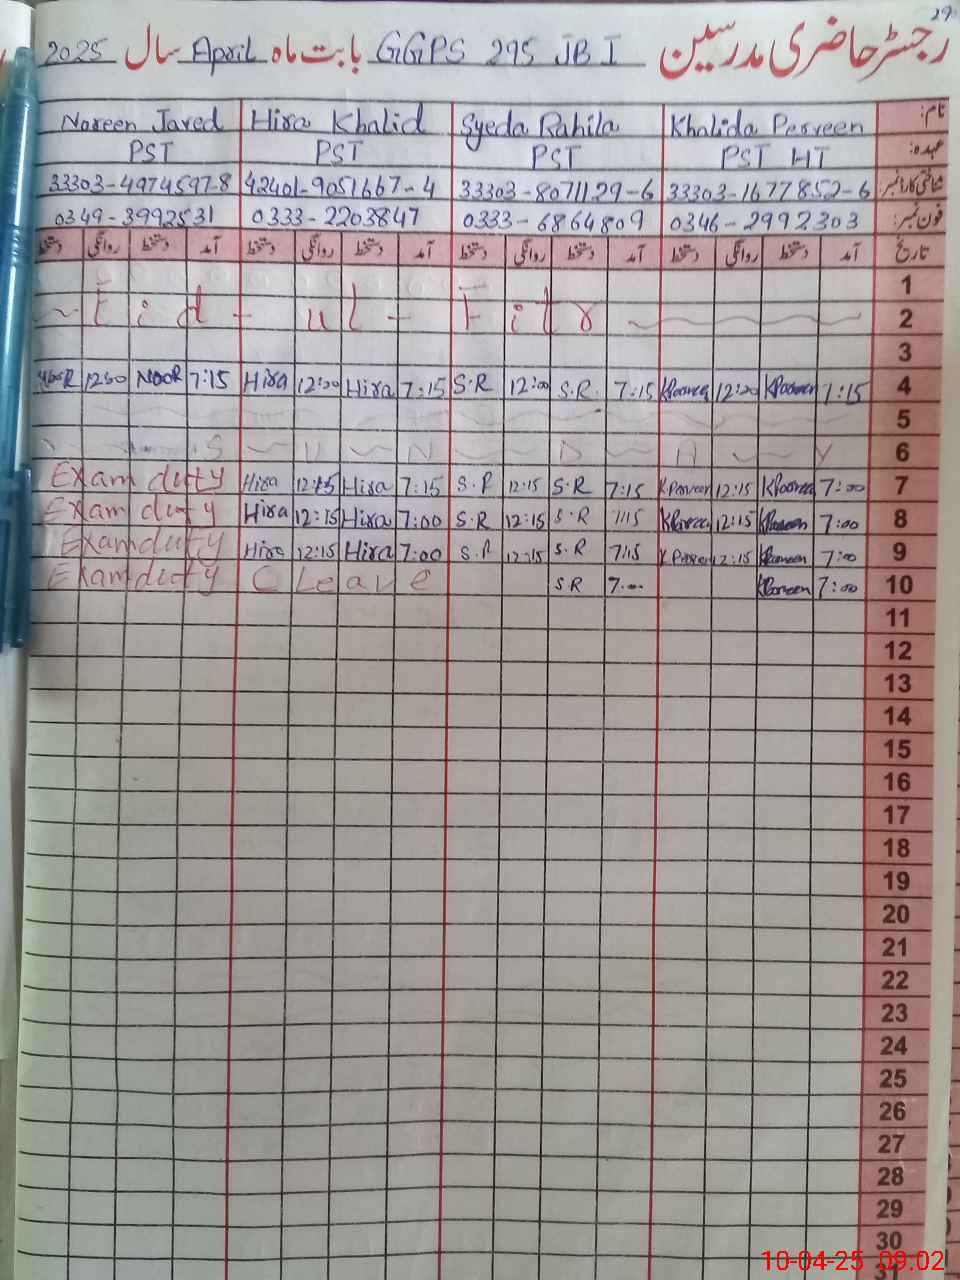 29
رجسٹر حاضری مدرسین GGPS 295 JB I بابت ماہ April سال 2025
نام: Khalida Perveen Syeda Rahila Hira Khalid Noreen Javed
عہدہ: PST HT PST PST PST
شناختی کارڈ نمبر: 33303-1677852-6 33303-8071129-6 42401-9051667-4 33303-4974597-8
فون نمبر: 0346-2992303 0333-6864809 0333-2203847 0349-3992531
تاریخ آمد دستخط روانگی دستخط آمد دستخط روانگی دستخط آمد دستخط روانگی دستخط آمد دستخط روانگی دستخط
1
Eid - ul - Fitr 2
3
NOOR 7:15 Hira 12:00 Hira 7:15 S.R 12:00 S.R. 7:15 12:00 7:15 4
5
S U N D A Y 6
Exam duty Hira 12:15 Hira 7:15 S.R 12:15 S.R 7:15 K Perveen 12:15 7:00 7
Exam duty Hira 12:15 Hira 7:00 S.R 12:15 S.R 7:15 12:15 7:00 8
Exam duty Hira 12:15 Hira 7:00 S.R 12:15 S.R 7:15 12:15 7:00 9
Exam duty C Leave S R 7:00 7:00 10
11
12
13
14
15
16
17
18
19
20
21
22
23
24
25
26
27
28
29
30
10-04-25 09:02